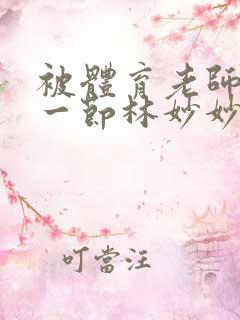 被體育老師
一節林妙妙
叮當汪